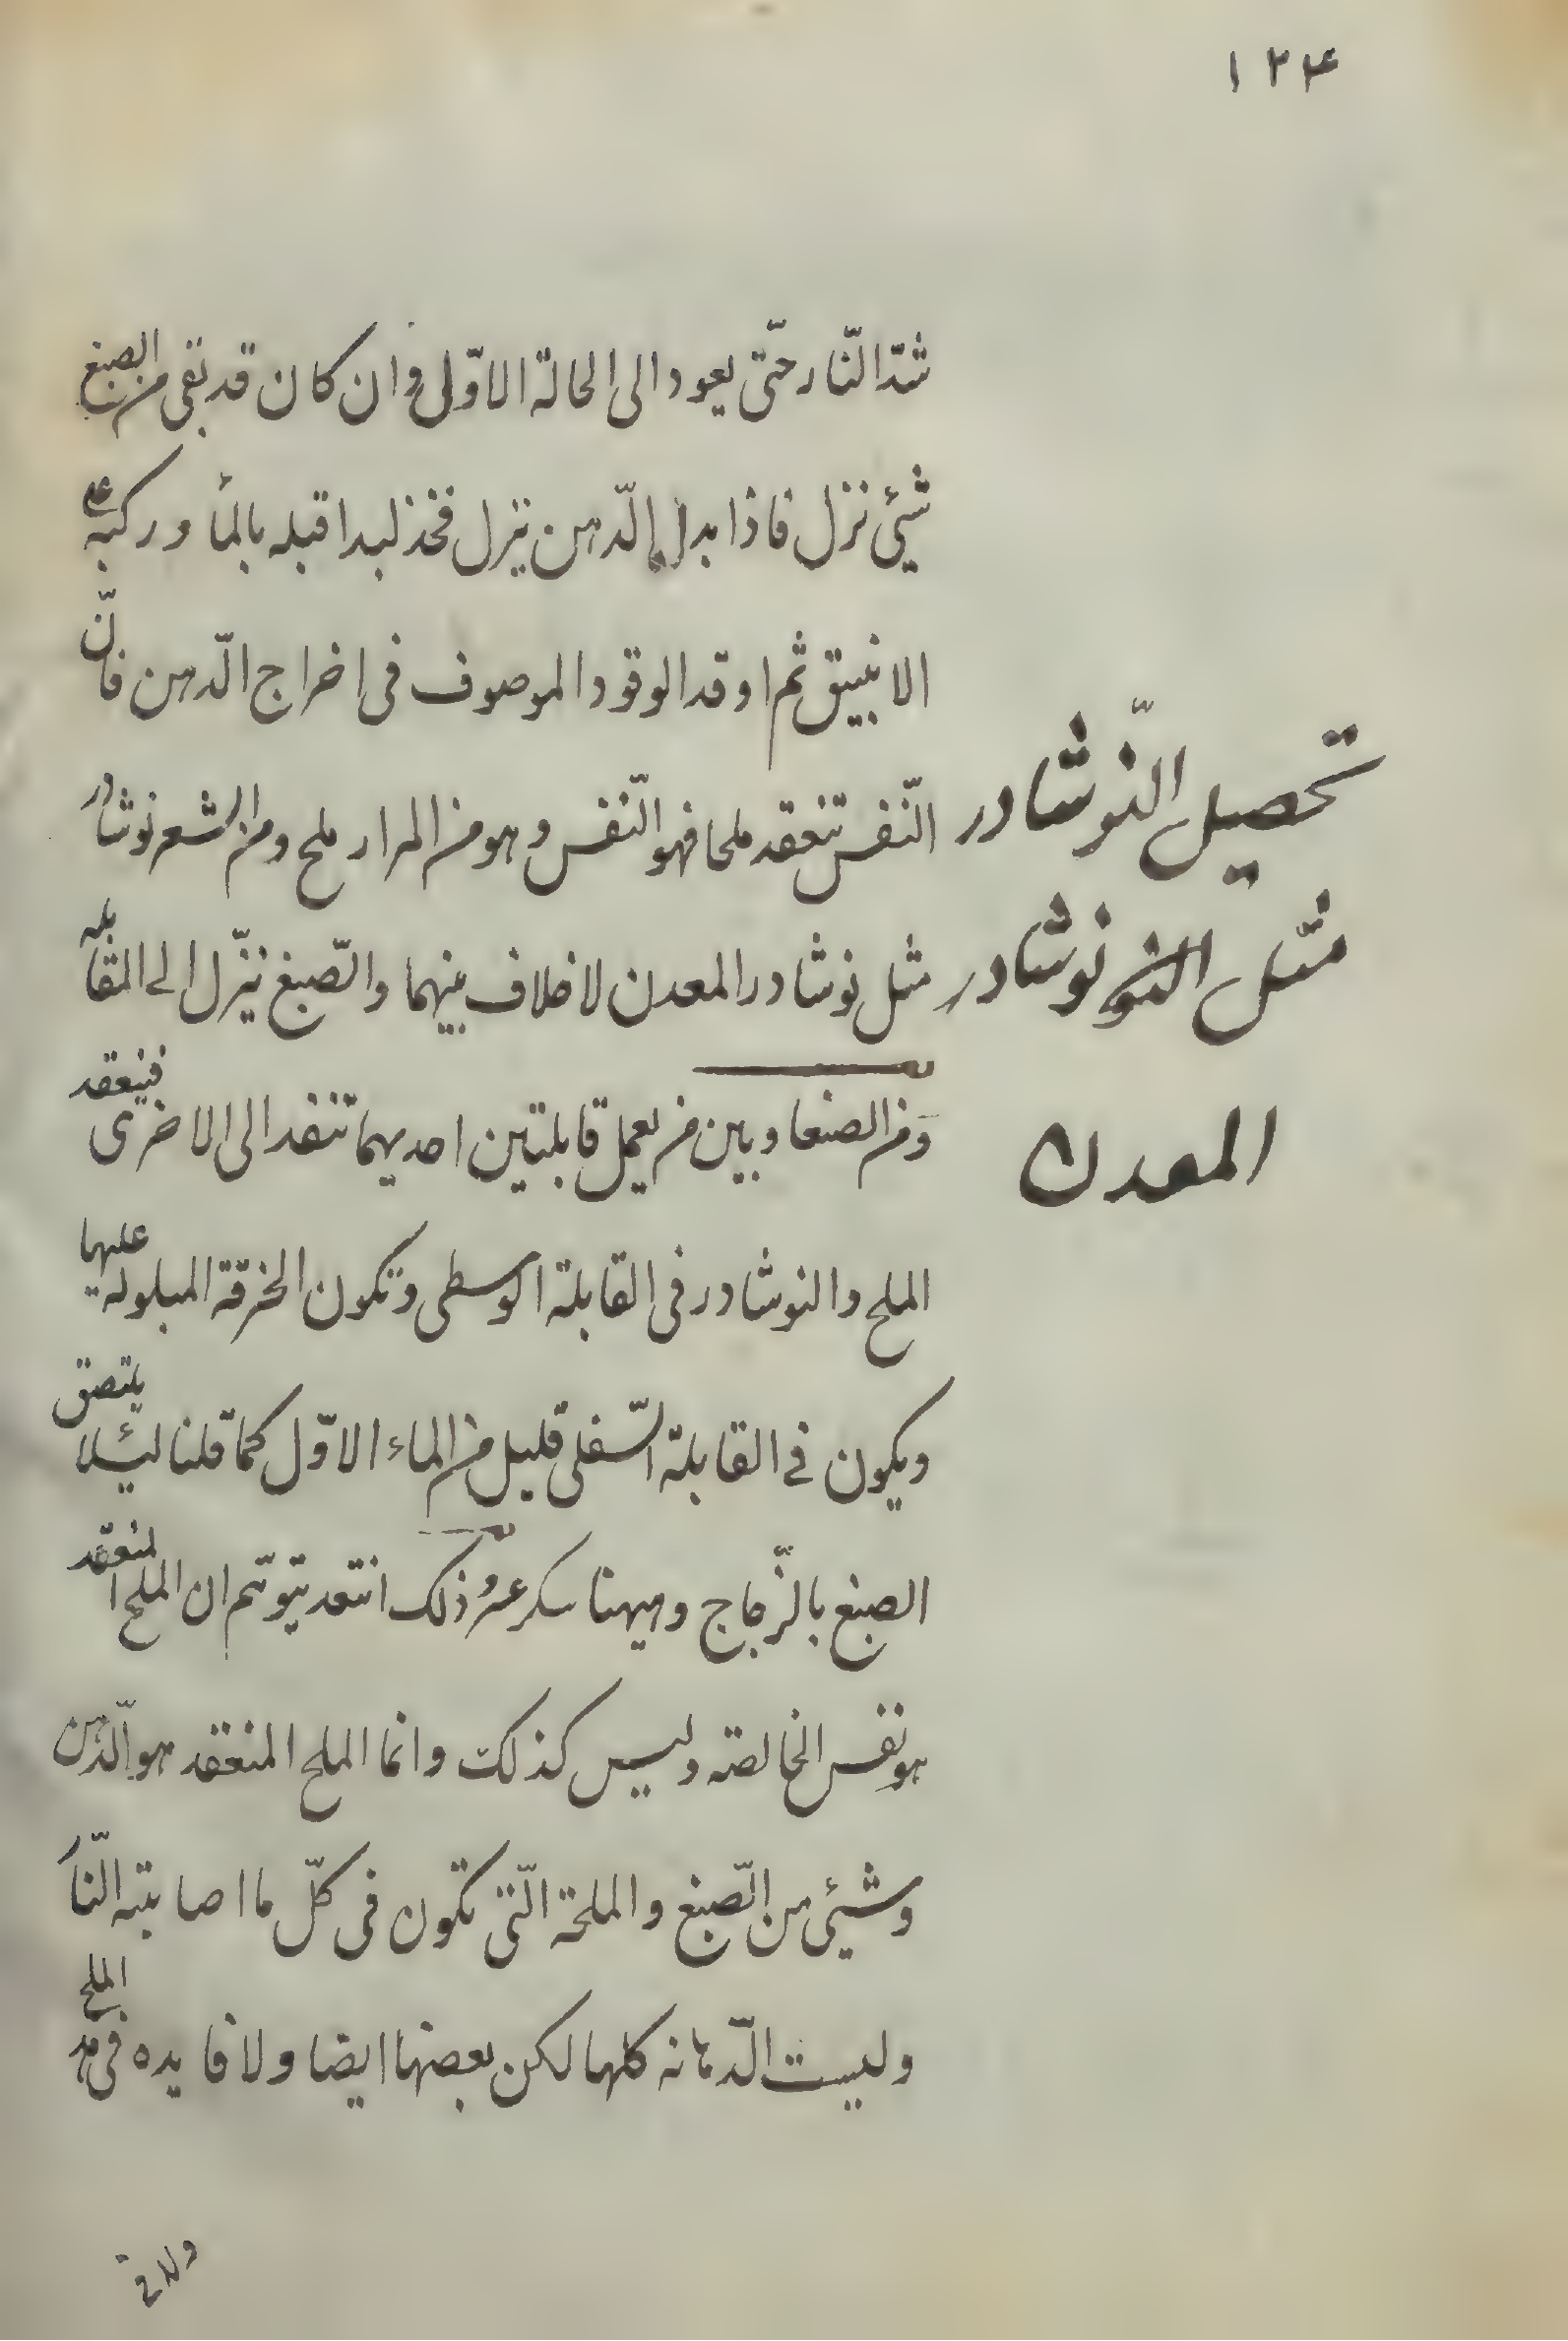 ۱۲۴
شدّ النّار حتّى يعود الى الحالة الاوّل و ان كان قد بقى من الصبغ
شئ نزل فاذا بدل الدّهن ينزل فخذ لبدا قبله بالمأ و ركبه على
الانبيق ثم اوقد الوقود الموصوف فى اخراج الدّهن فانّ
النّفس تنعقد ملحا فهو النّفس و هو من المرار ملح و من الشعر نوشادر
مثل نوشادر المعدن لا خلاف بينهما و الصّبغ ينزّل الى المقابله
و من الصنعاوبين من يعمل قابلتين احديهما تنفد الى الاخرى فينعقد
الملح و النوشادر فى القابلة الوسطى و تكون الخرقة المبلوله عليهما
ويكون فى القابلة السّفلى قليل من الماء الاوّل كما قلنا ليئلا يلتصق
الصبغ بالزّجاج و ههنا سكر عىر و ذلك انتعد يتوهّم ان الملح المنعقد
هو نفس الخالصته و ليس كذلك و انما الملح المنعقد هو الدّهن
و شيئ من الصّبغ و الملحة الّتى تكون فى كلّ ما اصابته النّار
و ليست الدّهانه كلها لكن بعضها ايضا و لا فايده فى هذ الملح
تحصيل النّوشادر
مثل النو نوشادر
المعدن